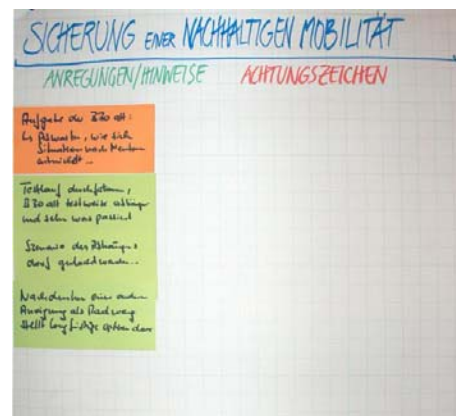 SICHERUNG EINER NACHHALTIGEN MOBILITÄT
ANREGUNGEN/HINWEISE ACHTUNGSZEICHEN
Aufgabe der B30 alt:
Abwarten, wie sich
Situation nach
entwickelt...
Testlauf durchführen,
B30 alt testweise
und sehn was passiert
Szenario des Abhängens
darf gedacht werden...
Nachdenken einer andern
als Radweg
stellt langfristige Option dar